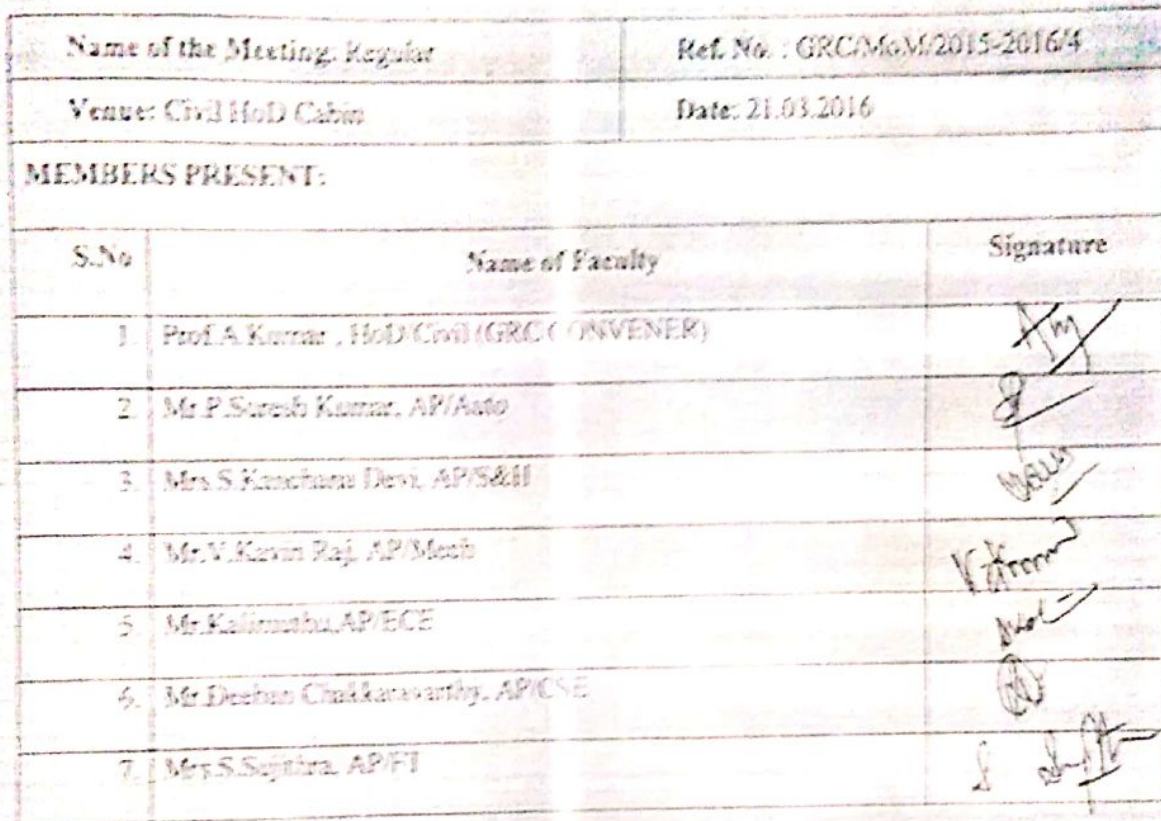 Name of the Meeting: Regular Ref. No. : GRC/MoM/2015-2016/4
Venue: Civil HoD Cabin Date: 21.03.2016
MEMBERS PRESENT:
S.No Name of Faculty Signature
1. Prof.A.Kumar , HoD/Civil (GRC CONVENER)
2. Mr.P.Suresh Kumar, AP/Auto
3. Mrs.S.Kanchana Devi, AP/S&H
4. Mr.V.Kavin Raj, AP/Mech
5. Mr.Kalimuthu,AP/ECE
6. Mr.Deeban Chakkaravarthy, AP/CSE
7. Mrs.S.Sujitra, AP/FT